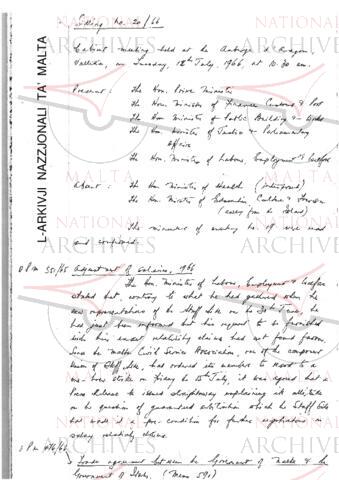 Sitting No. 20/66
Cabinet meeting held at the Auberge d'Aragon,
Valletta, on Tuesday, 12th July, 1966, at 10.30 am.
Present: The Hon. Prime Minister
The Hon. Minister of Finance Customs & Port
The Hon. Minister of Public Building & Works
The Hon. Minister of Justice & Parliamentary
Affairs
The Hon. Minister of Labour, Employment & Welfare
Absent: The Hon. Minister of Health (indisposed)
The Hon. Minister of Education, Culture & Tourism
(away from the Island)
The minutes of meeting No 19 were read
and confirmed.
OPM 551/65 Adjustment of salaries, 1966
The Hon. Minister of Labour, Employment & Welfare
stated that, contrary to what he had gathered when he
saw representatives of the Staff Side on the 30th June, he
had just been informed that his request to be furnished
with their exact relativity claims had not found favour.
Since the Malta Civil Service Association, one of the component
Unions of Staff Side, has ordered its members to resort to a
strike on Friday the 15th July, it was agreed that a
Press Release be issued straightaway explaining its attitude
on the question of guaranteed arbitration which the Staff Side
had made a pre-condition for further negotiations on
salary relativity claims.
OPM
Trade agreement between the Government of Malta & the
Government of Italy. (Memo 591)
L-ARKIVJI NAZZJONALI TA' MALTA
NATIONAL
ARCHIVES
MALTA